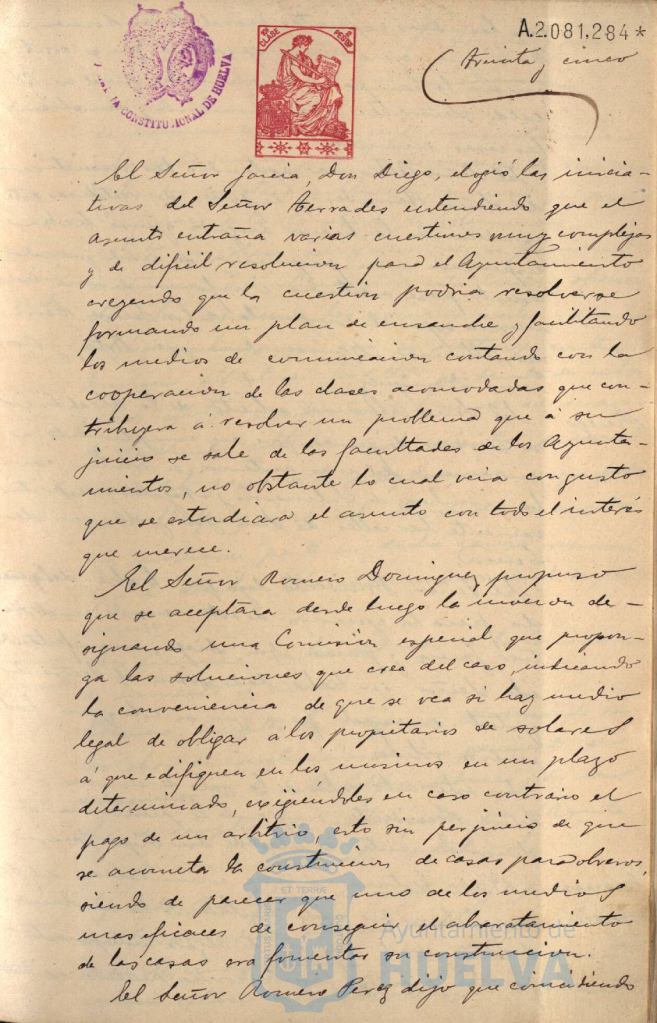 A.2.081.284*
CONSTITUCIONAL DE HUELVA
CLASE
treinta y cinco
El Señor Garcia, Don Diego, elogió las inicia-
tivas del Señor Terrades entendiendo que el
asunto entraña varias cuestiones muy complejas
y de dificil resolucion para el Ayuntamiento
creyendo que la cuestión podria resolverse
formando un plan de ensanche y facilitando
los medios de comunicacion contando con la
cooperacion de las clases acomodadas que con-
tribuyera á resolver un problema que á su
juicio se sale de las facultades de los Ayunta-
mientos, no obstante lo cual veria con gusto
que se estudiara el asunto con todo el interés
que merece.
El Señor Romero Dominguez propuso
que se aceptara desde luego la mocion de-
signando una Comision especial que propon-
ga las soluciones que crea del caso, indicando
la conveniencia de que se vea si hay medio
legal de obligar á los propietarios de solares
á que edifiquen en los mismos en un plazo
determinado, exigiéndoles en caso contrario el
pago de un arbitrio, esto sin perjuicio de que
se acometa la construccion de casas para obreros,
siendo de parecer que uno de los medios
mas eficaces de conseguir el abaratamiento
de las casas era fomentar su construccion.
El Señor Romero Perez dijo que coincidiendo
Ayuntamiento de
HUELVA